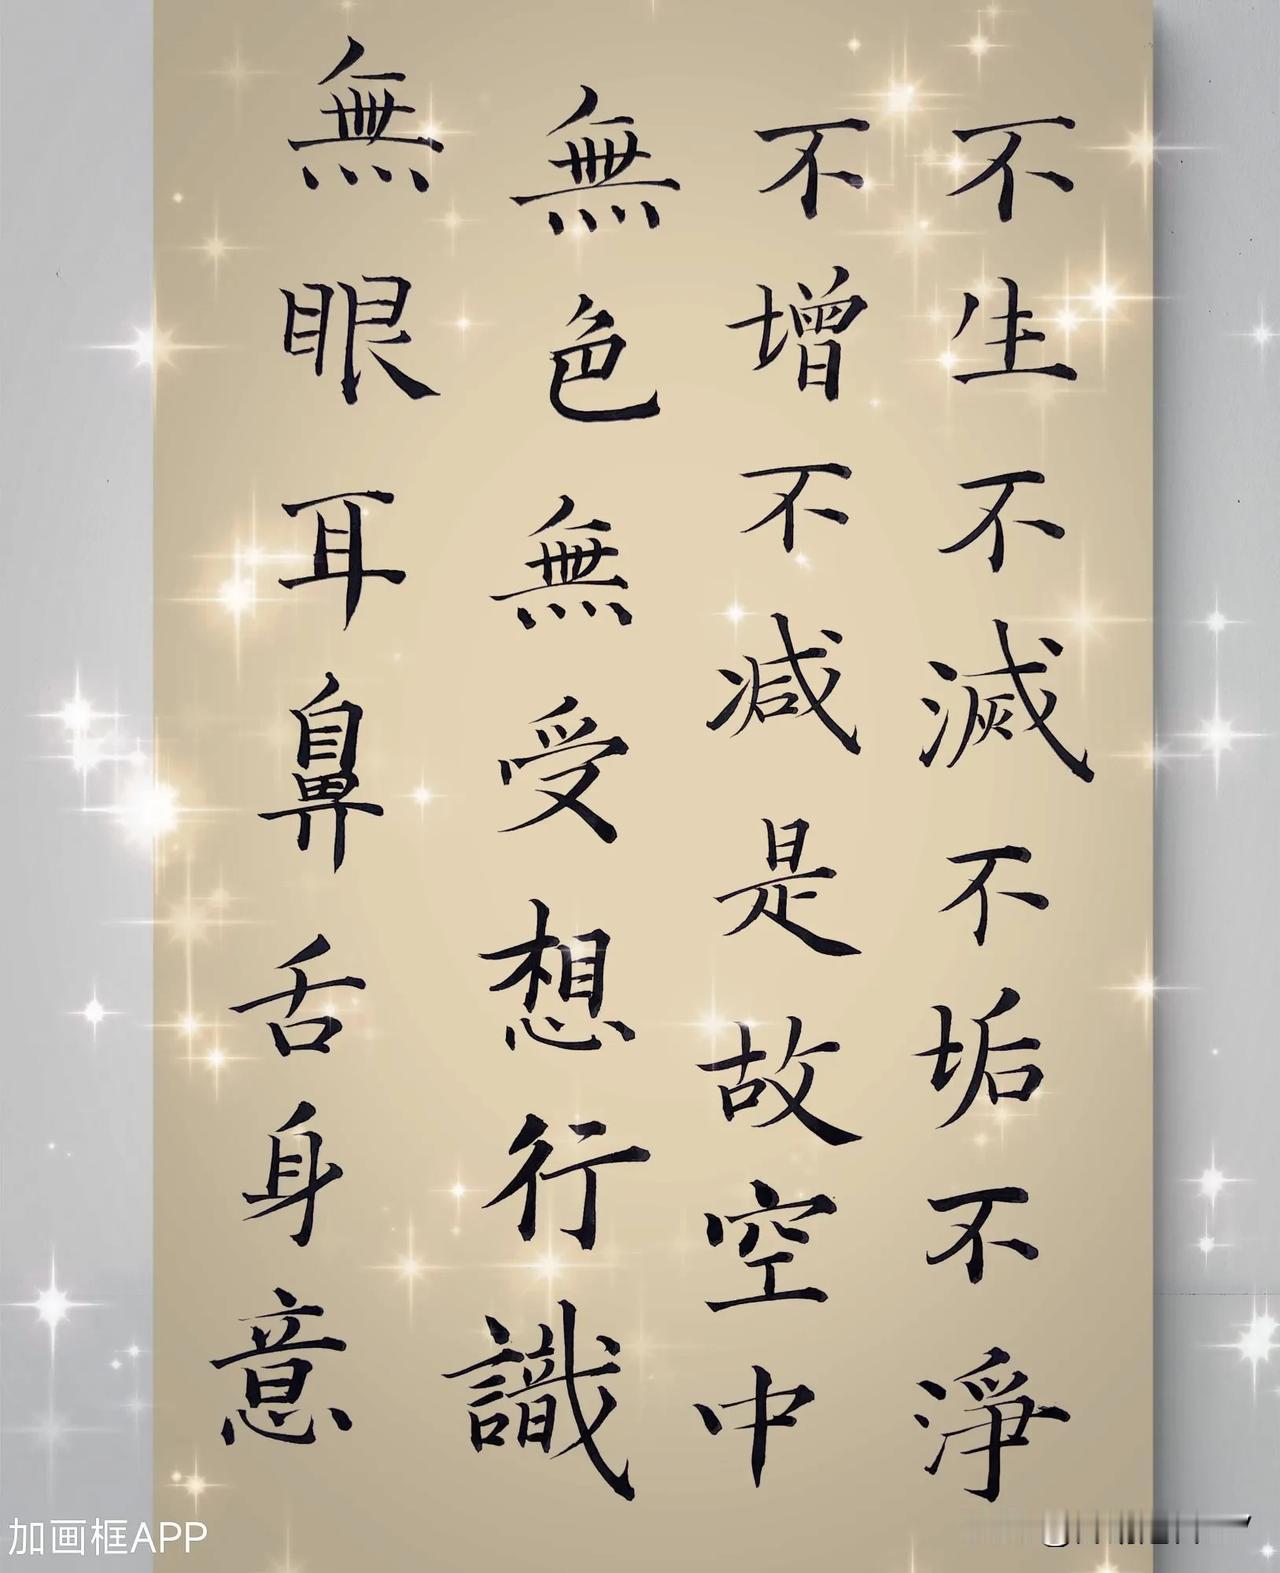 不生不滅不垢不淨
不增不减是故空中
無色無受想行識
無眼耳鼻舌身意
加画框APP